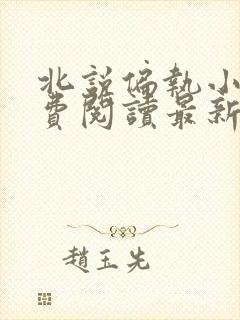 北說偏執小
費閱讀最新
趙玉先